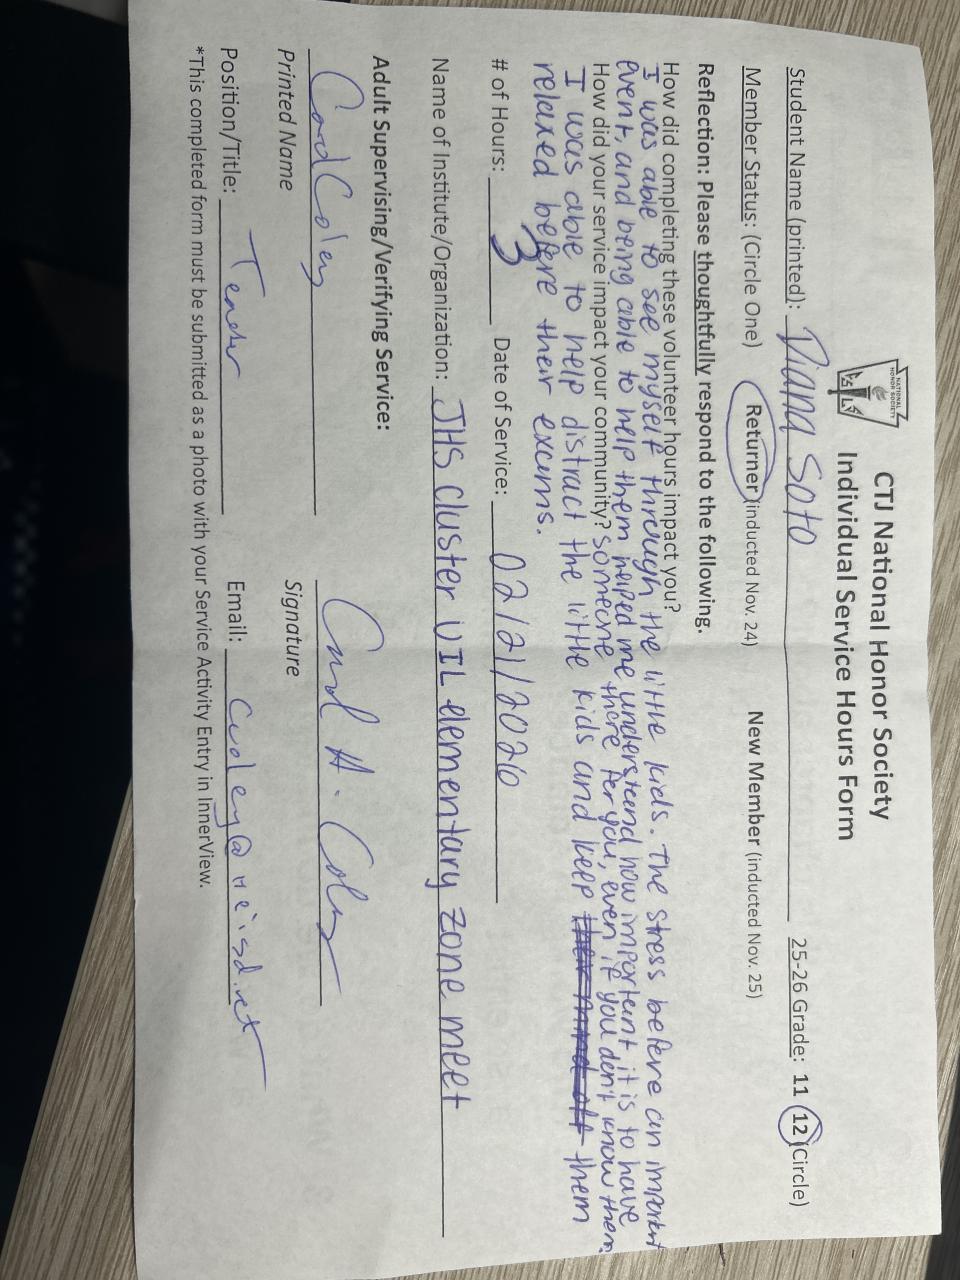 NATIONAL
HONOR SOCIETY
CTJ National Honor Society
Individual Service Hours Form
Student Name (printted): Diana Soto 25-26 Grade: 11 12 (Circle)
Member Status: (Circle One) Returner (inducted Nov. 24) New Member (inducted Nov. 25)
Reflection: Please thoughtfully respond to the following.
How did completing these volunteer hours impact you?
I was able to see myself through the little kids. The stress before an important
event, and being able to help them helped me understand how important it is to have
How did your service impact your community? someone there for you, even if you don't know them.
I was able to help distract the little kids and keep their mind off them
relaxed before their exams.
# of Hours: 3 Date of Service: 02/21/2026
Name of Institute/Organization: JHS cluster UIL elementary zone meet
Adult Supervising/Verifying Service:
Carol Coley Carol A. Coley
Printed Name Signature
Position/Title: Teacher Email: ccoley@neisd.net
*This completed form must be submitted as a photo with your Service Activity Entry in InnerView.